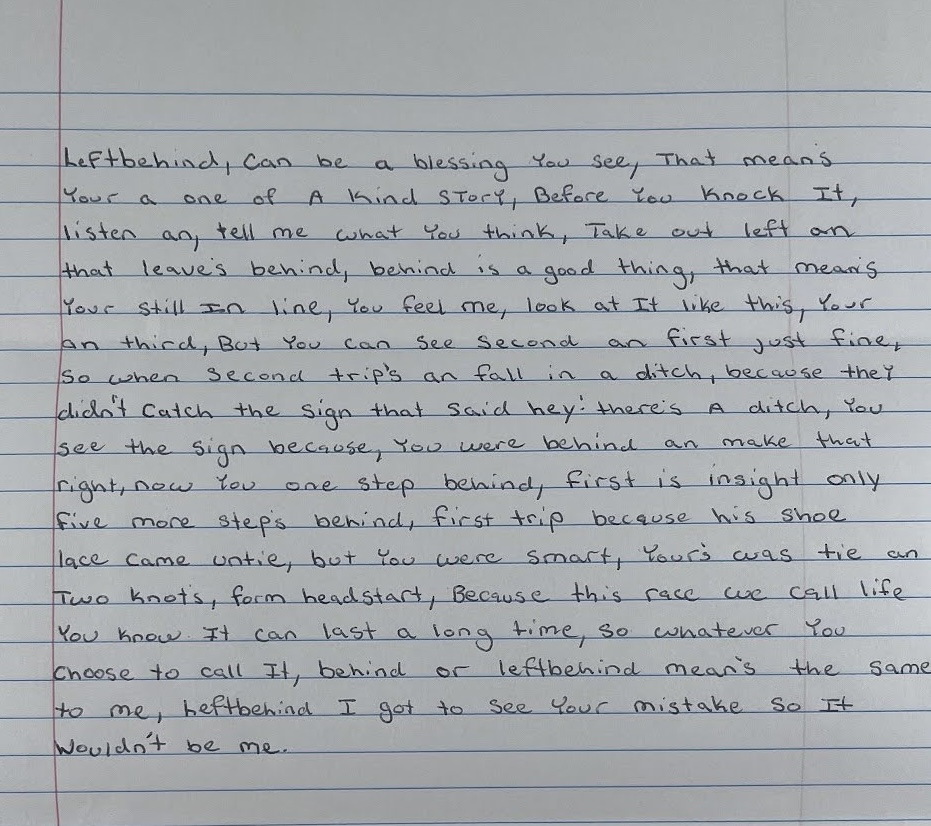 Leftbehind, Can be a blessing You see, That mean's
Your a one of A Kind STorY, Before You Knock It,
listen an, tell me what You think, Take out left an
that leave's behind, behind is a good thing, that mean's
Your still In line, You feel me, look at It like this, Your
an third, But You can see second an first just fine,
So when second trip's an fall in a ditch, because they
didn't catch the sign that said hey! there's A ditch, You
see the sign because, You were behind an make that
right, now You one step behind, first is insight only
five more step's behind, first trip because his shoe
lace came untie, but You were smart, Your's was tie an
Two knot's, form headstart, Because this race we call life
You know. It can last a long time, so whatever You
choose to call It, behind or leftbehind mean's the same
to me, Leftbehind I got to see Your mistake so It
Wouldn't be me.